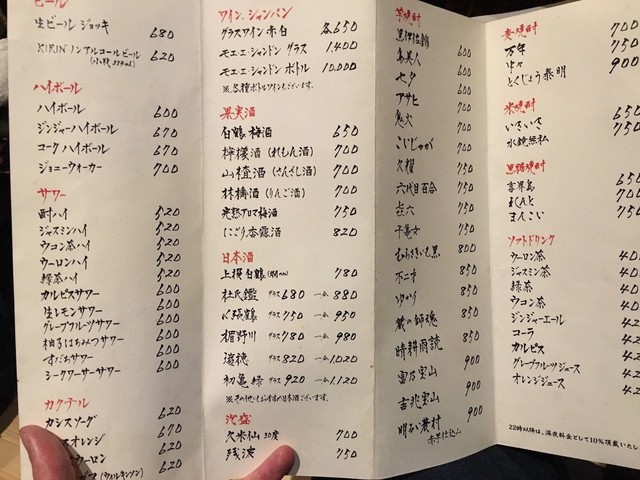 ビール
生ビール ジョッキ 680
KIRIN ノンアルコールビール 620
(小瓶334ml)
ハイボール
ハイボール 600
ジンジャーハイボール 670
コークハイボール 670
ジョニーウォーカー 700
サワー
酎ハイ 520
ジャスミンハイ 520
ウコン茶ハイ 520
ウーロンハイ 520
緑茶ハイ 520
カルピスサワー 600
生レモンサワー 600
グレープフルーツサワー 600
柚子はちみつサワー 600
すだちサワー 600
シークワーサーサワー 600
カクテル
カシスソーダ 620
オレンジ 670
ウーロン 620
(ウィルキンソン) 620
ワイン、シャンパン
グラスワイン 赤・白 各650
モエ・エ・シャンドン グラス 1,400
モエ・エ・シャンドン ボトル 10,000
※各種ボトルワインもございます。
果実酒
白鶴梅酒 650
檸檬酒(れもん酒) 700
山樝酒(さんざし酒) 700
林檎酒(りんご酒) 700
発熱アロマ梅酒 750
にごり杏露酒 820
日本酒
上撰白鶴 780
杜氏鑑 グラス680 一合880
〆張鶴 グラス750 一合950
楯野川 グラス780 一合980
澤徳 グラス820 一合1,020
初亀 緑 グラス920 一合1,120
※その他にもおすすめの日本酒ございます。
泡盛
久米仙30度 700
残波 750
芋焼酎
黒伊佐錦 600
島美人 600
七夕 600
アサヒ 700
鬼火 700
こいじゃが 700
久耀 750
六代目百合 750
㐂六 750
千亀女 750
むらさきいも黒 800
不二才 850
ゆかり 850
蔵の師魂 850
晴耕雨読 850
富乃宝山 900
吉兆宝山 900
明るい農村 900
赤芋仕込み
麦焼酎
万年 700
中々 700
とくじょう泰明 900
米焼酎
いさいさ 650
水鏡無私 700
黒糖焼酎
喜界島 650
れんと 700
まんこい 750
ソフトドリンク
ウーロン茶
ジャスミン茶
緑茶
ウコン茶
ジンジャーエール
コーラ
カルピス
グレープフルーツジュース
オレンジジュース
22時以降は、深夜料金として10%頂戴いたし